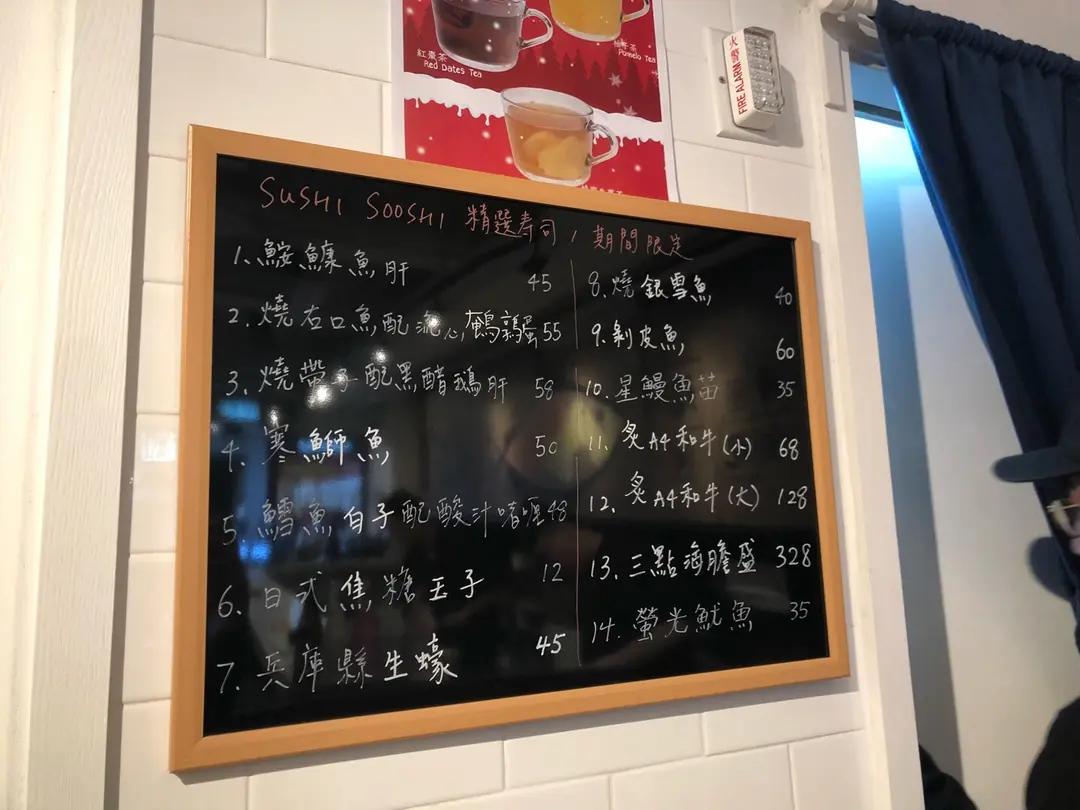 紅棗茶
Red Dates Tea
柚子茶
Pomelo Tea
火警
FIRE ALARM
SUSHI SOOSHI 精選寿司, 期間限定
1. 鮟鱇魚肝 45
2. 燒右口魚配流心鵪鶉蛋 55
3. 燒帶子配黑醋鵝肝 58
4. 寒鰤魚 50
5. 鱈魚白子配酸汁啫喱 48
6. 日式焦糖玉子 12
7. 兵庫縣生蠔 45
8. 燒銀雪魚 40
9. 剝皮魚 60
10. 星鰻魚苗 35
11. 炙A4和牛(小) 68
12. 炙A4和牛(大) 128
13. 三點海膽盛 328
14. 螢光魷魚 35